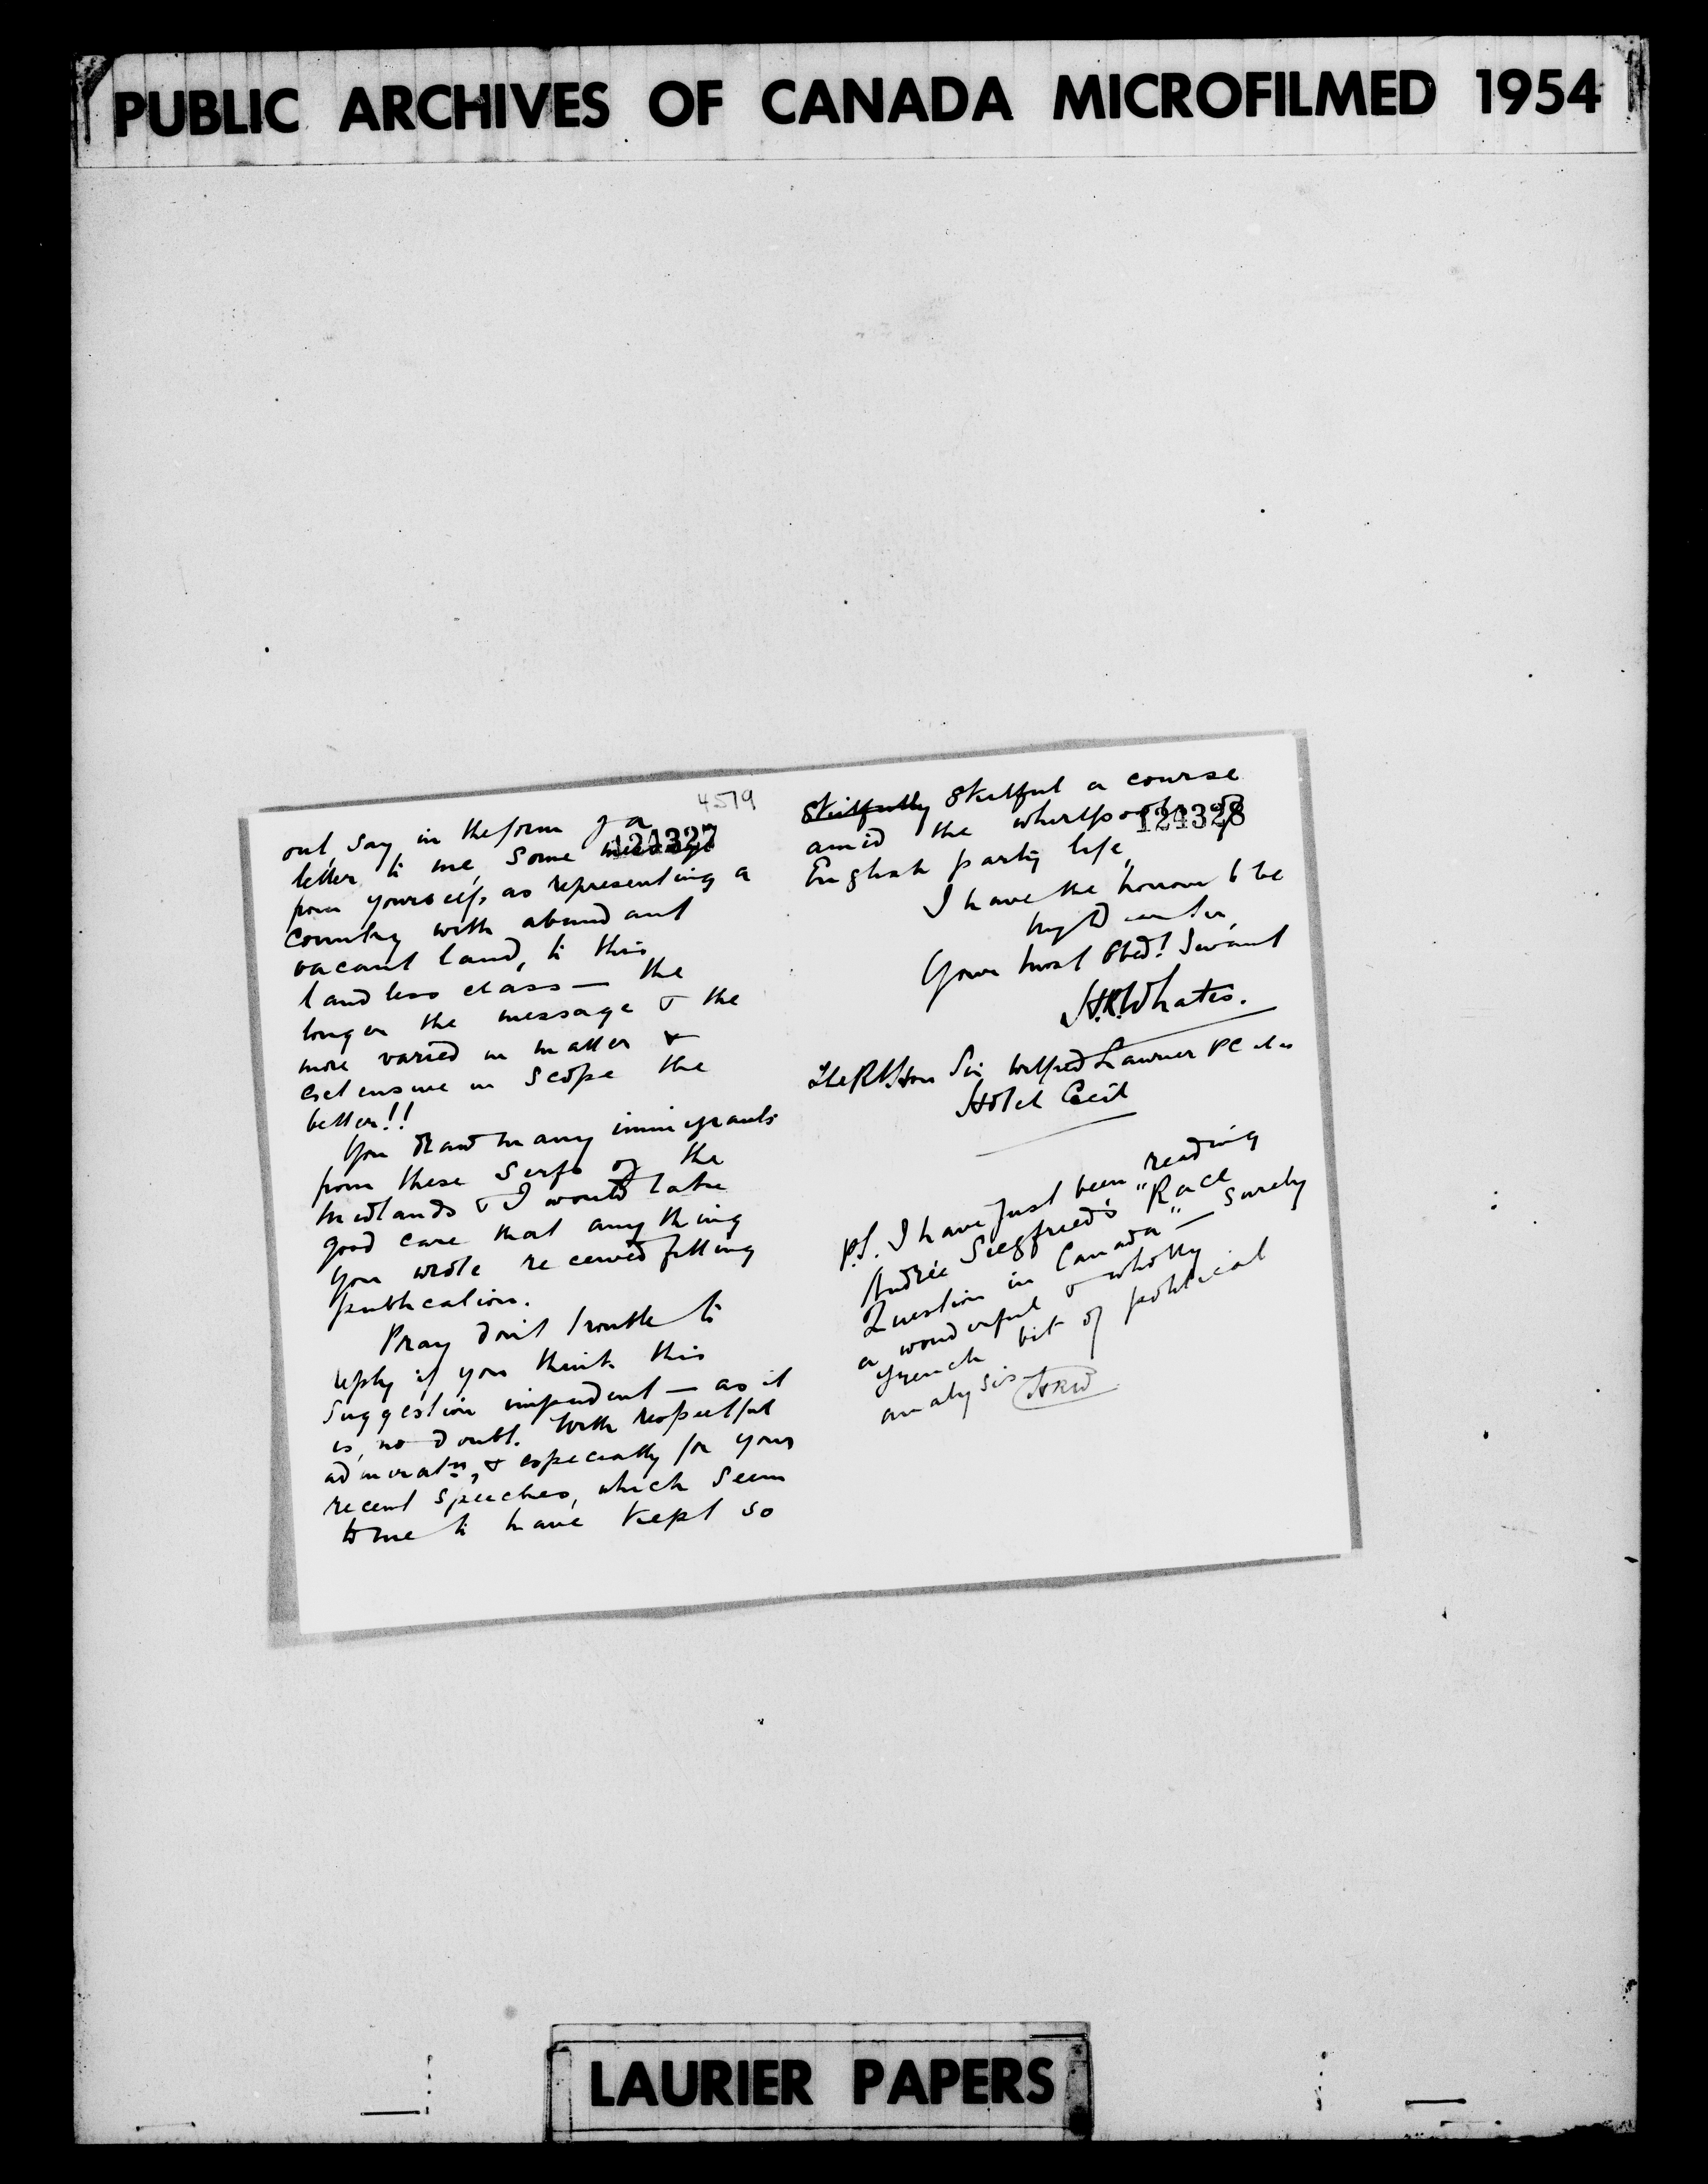 PUBLIC ARCHIVES OF CANADA MICROFILMED 1954
4579
124327
out, say, in the form of a
letter to me, some message
from yourself, as representing a
country with abundant
vacant land, to this
landless class — the
longer the message & the
more varied in matter &
extensive in scope the
better!!
You draw many immigrants
from these serfs of the
Midlands & I would take
good care that anything
you wrote received fitting
publication.
Pray don't trouble to
reply if you think this
suggestion impudent — as it
is, no doubt. With respectful
admiratn, & especially for your
recent speeches, which seem
to me to have kept so
124328
skilfully skilful a course
amid the whirlpools of
English party life,
I have the honour to be
Your most Obedt Servant
H.R.Whates.
The Rt. Hon Sir Wilfred Laurier PC
Hotel Cecil
P.S. I have just been reading
André Siegfried's "Race
Question in Canada" — surely
a wonderful & wholly
French bit of political
analysis HRW
LAURIER PAPERS